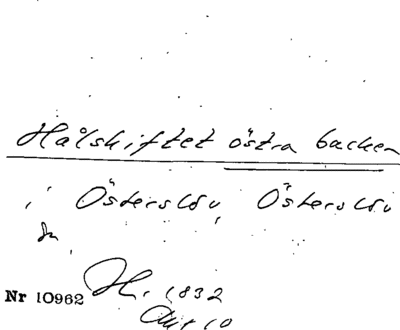 Hålskiftet östra backen
i Österslöv, Österslöv
sn
Nr 10962 H. 1832
Akt 10